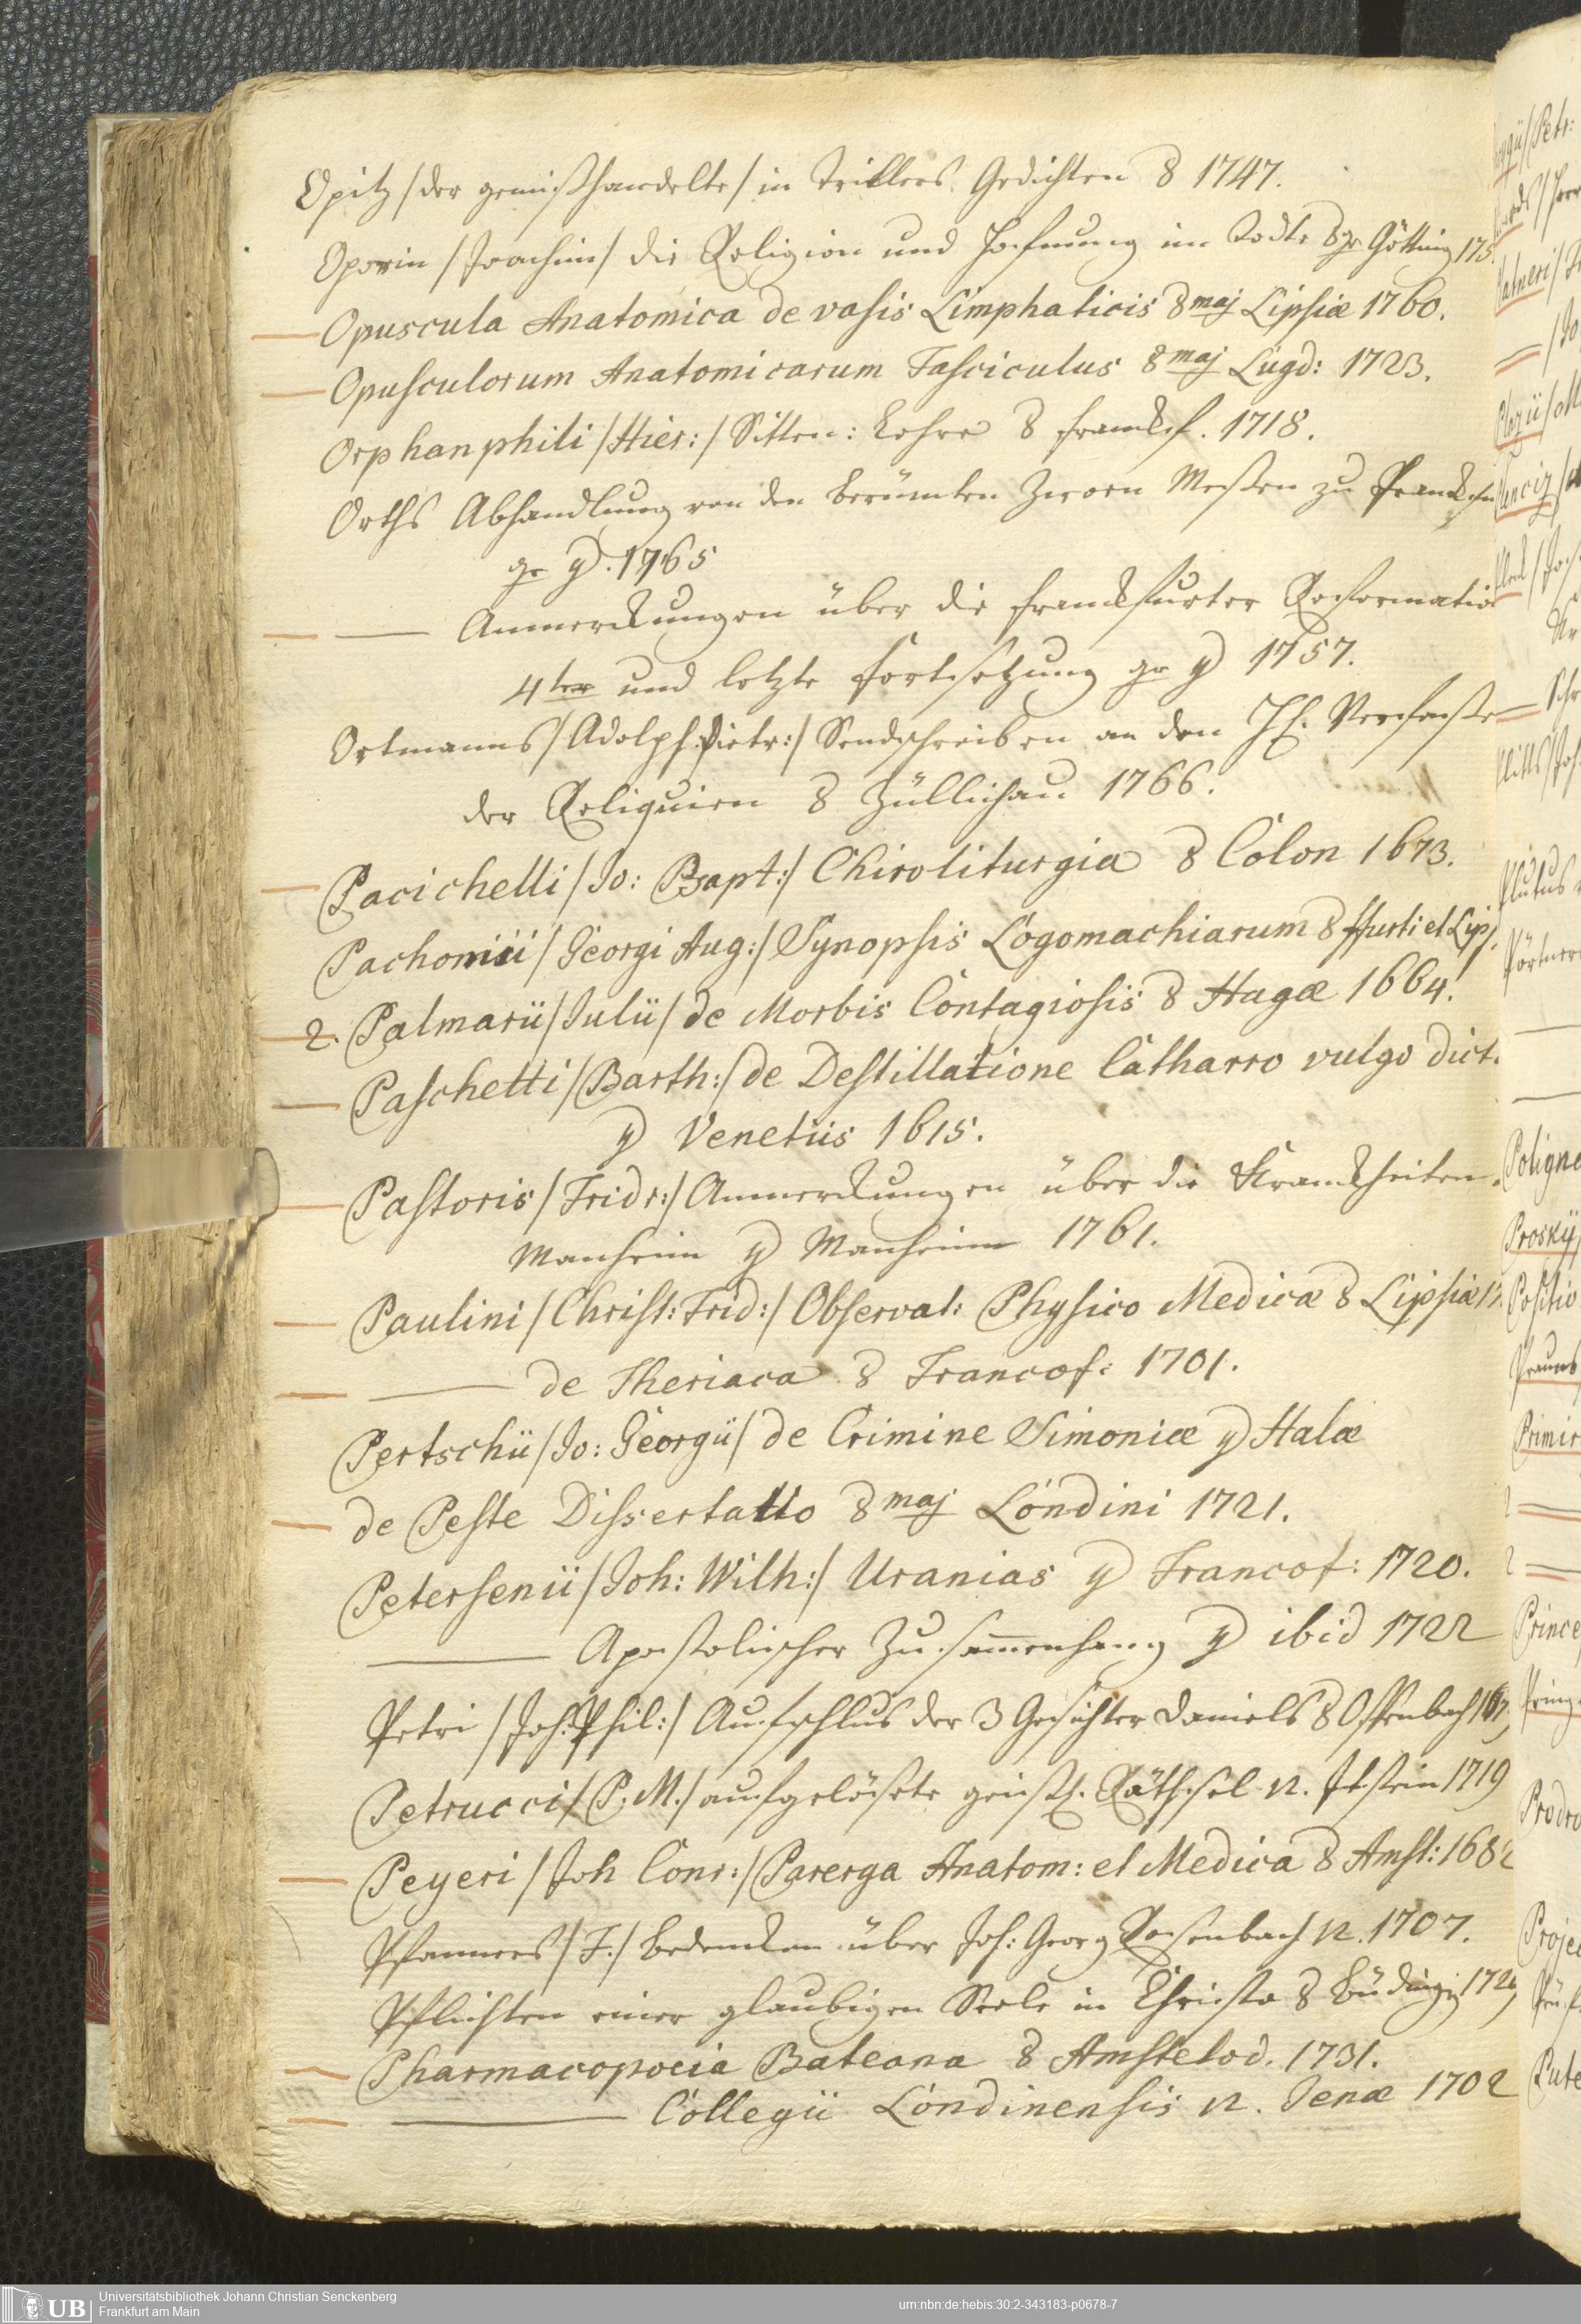 Opitz /der gemißhandelte/ in Trillers Gedichten 8 1747.
Oporin /Joachim/ die Religion und Hofnung im Todte 8 gr Götting 175
Opuscula Anatomica de vasis Limphaticis 8 maj Lipsiæ 1760.
Opusculorum Anatomicarum Fasciculus 8 maj Lugd: 1723.
Orphanphili /Hier:/ Sitten: Lehre 8 franckf. 1718.
Orths Abhandlung von den berümten Zwoen Meßen zu
gr 4. 1765
— Anmerckungen über die franckfurter Reformation
4ter und letzte fortsetzung gr 4 1757.
Ortmanns /Adolph Dietr:/ Sendschreiben an den H. Verfaße
der Reliquien 8 Züllichau 1766.
Pacichelli /Jo: Bapt:/ Chiroliturgia 8 Colon 1673.
Pachomii /Georgi Aug:/ Synopsis Logomachiarum 8 ffurti et Lips.
2. Palmarii /Julii/ de Morbis Contagiosis 8 Hagæ 1664.
Paschetti /Barth:/ de Destillatione Catharro vulgo dict.
4 Venetiis 1615.
Pastoris /Fridr:/ Anmerckungen über die Kranckheiten
Manheim 4 Manheim 1761.
Paulini /Christ: Frid:/ Observat: Physico Medicæ 8 Lipsiæ 17
— de Theriaca 8 Francof: 1701.
Pertschii /Jo: Georgii/ de Crimine Simoniæ 4 Halæ
de Peste Dissertatio 8 maj Londini 1721.
Petersenii /Joh: Wilh:/ Uranias 4 Francof: 1720.
— Apostolischer Zusamenhang 4 ibid 1722
Petri /Joh: Phil:/ Aufschlus der 3 Gesichter Daniels 8 Offenbach 167
Petrucci /P. M./ aufgelösete geistl. Räthsel 12. Itstein 1719
Peyeri /Joh Conr:/ Parerga Anatom: et Medica 8 Amst: 1682
Pfanners /T./ bedencken über Joh: Georg Rosenbach 12. 1707.
Pflichten einer glaubigen Seele in Christo 8 Büding 172
Pharmacopoeia Bateana 8 Amstelod. 1731.
— Collegii Londinensis 12. Jenæ 1702
Universitätsbibliothek Johann Christian Senckenberg
Frankfurt am Main
UB
urn:nbn:de:hebis:30:2-343183-p0678-7